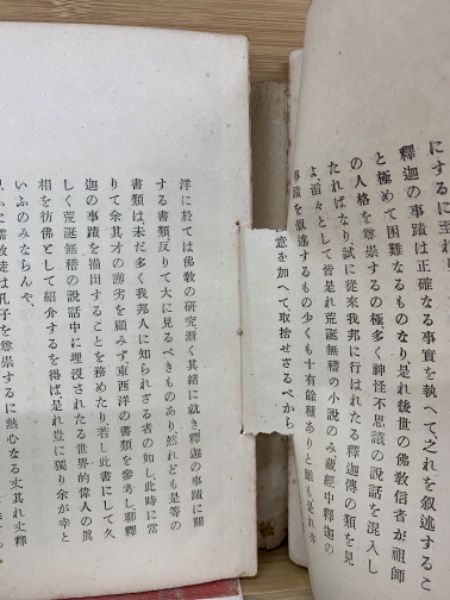 にするに至れり
釋迦の事蹟は正確なる事實を執へて、之れを叙述するこ
と極めて困難なるものなり是れ後世の佛敎信者が祖師
の人格を尊崇するの極多く神怪不思議の說話を混入し
たればなり試に從來我邦に行はれたる釋迦傳の類を見
よ、滔々として皆是れ荒誕無稽の小說のみ藏經中釋迦の
事蹟を叙述するもの少くも十有餘種ありと雖も是れ亦
意を加へて取捨せざるべから
洋に於ては佛敎の硏究漸く其緖に就き釋迦の事蹟に關
する書類反りて大に見るべきものあり、然れども是等の
書類は、未だ多く我邦人に知られざる者の如し、此時に當
りて余其才の謭劣を顧みず、東西洋の書類を參考し、聊釋
迦の事蹟を描出することを務めたり、若し此書にして久
しく荒誕無稽の說話中に埋沒されたる世界的偉人の眞
相を彷彿として紹介するを得ば是れ豈に獨り余が幸と
いふのみならんや、
儒敎徒は孔子を尊崇するに熱心なる丈其れ丈釋